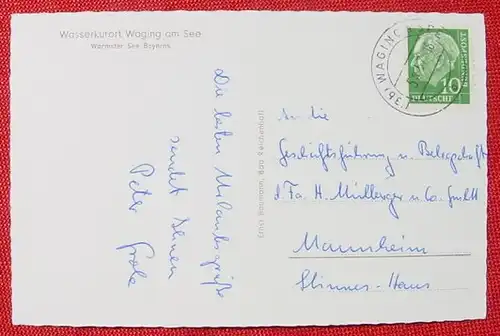 Wasserkurort Waging am See
Wärmster See Bayerns
Die besten Urlaubsgrüße
sendet Ihnen
Peter
Ernst Baumann, Bad Reichenhall
WAGING
DEUTSCHE
BUNDESPOST
10
An die
Geschäftsführung u. Belegschaft
d. Fa. H. Müllberger u. Co. GmbH
Mannheim
Stinnes-Haus